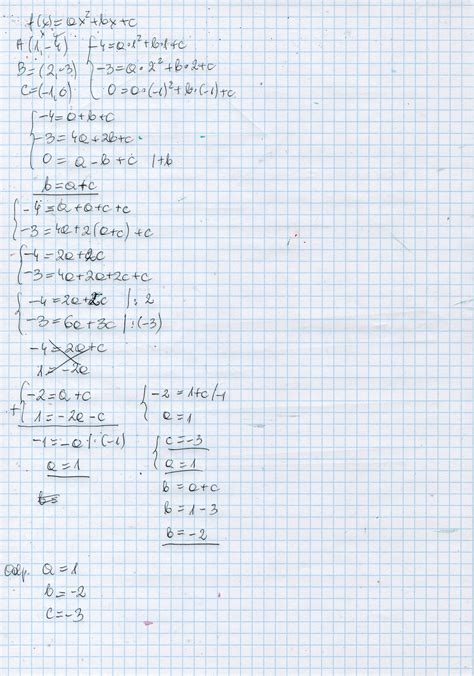 f(x)=ax²+bx+c
A(1,-4) { -4=a·1²+b·1+c
B=(2,-3) { -3=a·2²+b·2+c
C=(-1,0) { 0=a·(-1)²+b·(-1)+c
{ -4=a+b+c
{ -3=4a+2b+c
{ 0=a-b+c |+b
b=a+c
{ -4=a+a+c+c
{ -3=4a+2(a+c)+c
{ -4=2a+2c
{ -3=4a+2a+2c+c
{ -4=2a+2c |:2
{ -3=6a+3c |:(-3)
-4=2a+c
1=-2a
+ { -2=a+c
{ 1=-2a-c
-1=-a |:(-1)
a=1
b=
{ -2=1+c/-1
{ a=1
{ c=-3
{ a=1
b=a+c
b=1-3
b=-2
Odp. a=1
b=-2
c=-3